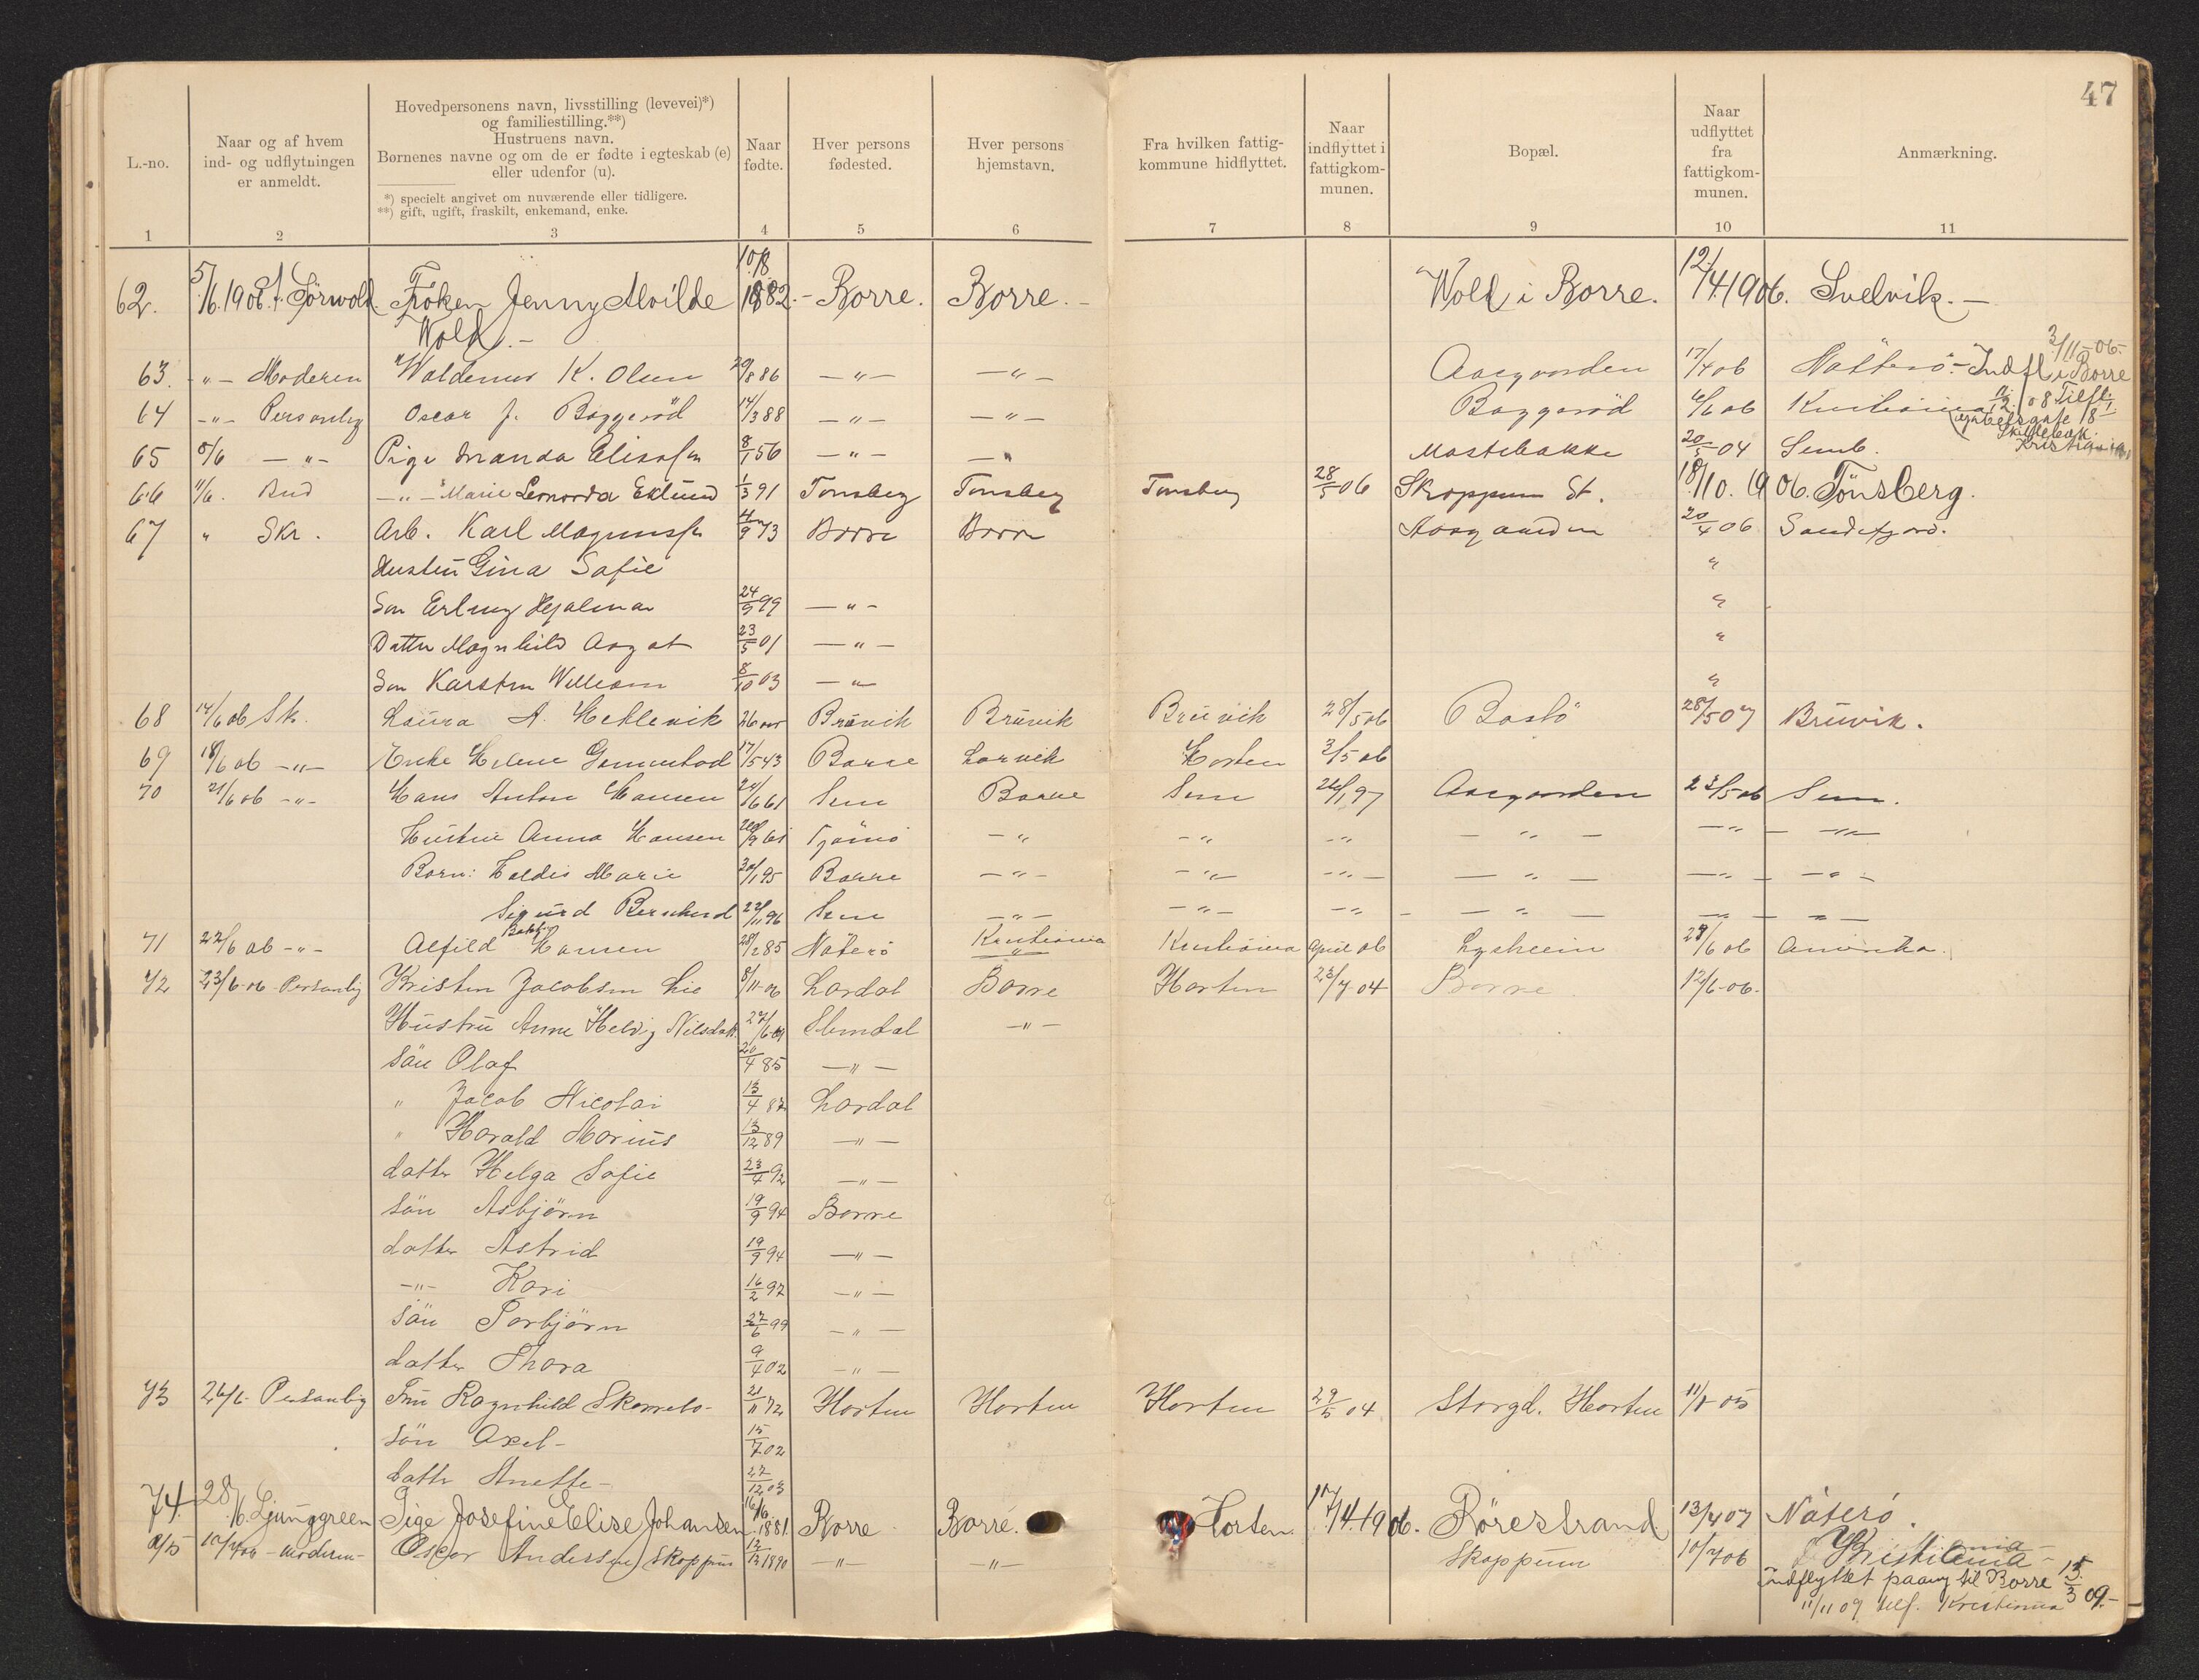 47
L.-no.
Naar og af hvem
ind- og udflytningen
er anmeldt.
Hovedpersonens navn, livsstilling (levevei)*)
og familiestilling.**)
Hustruens navn.
Børnenes navne og om de er fødte i egteskab (e)
eller udenfor (u).
*) specielt angivet om nuværende eller tidligere.
**) gift, ugift, fraskilt, enkemand, enke.
Naar
fødte.
Hver persons
fødested.
Hver persons
hjemstavn.
Fra hvilken fattig-
kommune hidflyttet.
Naar
indflyttet i
fattigkom-
munen.
Bopæl.
Naar
udflyttet
fra
fattigkom-
munen.
Anmærkning.
1 2 3 4 5 6 7 8 9 10 11
62. 5/6.1906. Sørwold Frøken Jenny Alvilde 10/8 1882.- Borre. Borre.- Wold i Borre. 12/4 1906. Svelvik.-
Wold.-
3/11-06-
63. -"- Moderen Waldemar K. Olsen 29/8 86 -"- -"- Aasgaarden 17/4 06 Nøtterø.- Indfl i Borre
64 -"- Personlig Oscar J. Baggerød 14/3 88 -"- -"- Baggerød 6/6 06 Kristiania 08 Tilfl.
65 8/6 -"- Pige Amanda Elisa 8/1 56 -"- -"- Mastebakke 04 Semb.
Kristiania
66 11/6. Bud -"- Marie Leonorda Eklund 1/3 91 Tønsberg Tønsberg Tønsberg 28/5 06 Skoppum St. 18/10.1906. Tønsberg.
67 " Skr. Arb. Karl Magnussen 4/9 73 Borre Borre Aasgaarden 20/4 06 Sandefjord.
Hustru Gina Sofie "
Søn Erling Hjalmar 24/9 99 -"- "
Datter Magnhild Aagot 23/5 01 -"- "
Søn Karsten William 8/10 03 -"- "
68 14/6 06 Sk. Laura A. Hetlevik 26 aar Brüvik Brüvik Brüvik 28/5 06 Bastø 28/5 07 Brüvik.
69 18/6 06 -"- Enke Helene 17/5 43 Borre Larvik Horten 3/5 06
70 21/6 06 -"- Hans Anton Hansen 24/6 61 Sem Borre Sem 26/1 97 Aasgaarden 23/5 06 Sem.
Hustru Anna Hansen Tjømø -"- -"- -"- -"- -"- -"-
Børn: Haldis Marie 30/1 95 Borre -"- -"- -"- -"- -"- -"-
Sigurd Bernhard 22/11 96 Sem -"- -"- -"- -"- -"- -"-
71 22/6 06 -"- Alfild Hansen 28/2 85 Nøterø Kristiania Kristiania April 06 Lysheim 28/6 06 Amerika.
72 23/6-06- Personlig Kristen Jacobsen Lie 8/11-06 Lardal Borre Horten 23/7-04 Borre 12/6-06-
Hustru Anne Helvig Nilsdatt. Slemdal -"-
Søn Olaf 20/4 85 -"-
" Jacob Nicolai 13/4 87 Lardal
" Harald Marius 13/12 89 -"-
datter Helga Sofie 23/4 92 -"-
Søn Asbjørn 19/9 94 Borre
datter Astrid 19/9 94 -"-
-"- Kari 16/2 97 -"-
Søn Torbjørn 27/6 99 -"-
datter Thora 9/4 02 -"-
73 26/6- Personlig Fru Ragnhild 21/11 72 Horten Horten Horten 29/5 04 Storgd. Horten 05
Søn Axel- 15/7 02
datter Anette- 22/12 03
74. 28/6. Ljunggreen Pige Josefine Elise Johansen 16/6. 1881. Borre Borre. Horten. 17/4.1906. Rørestrand 13/4 07 Nøterø.
10/7 06- Moderen- Oscar Andersen Skoppum 1890 -"- -"- Skoppum 10/7 06 Kristiania-
Indflyttet paany til Borre 15/3 09.-
11/11 09 tilf. Kristiania